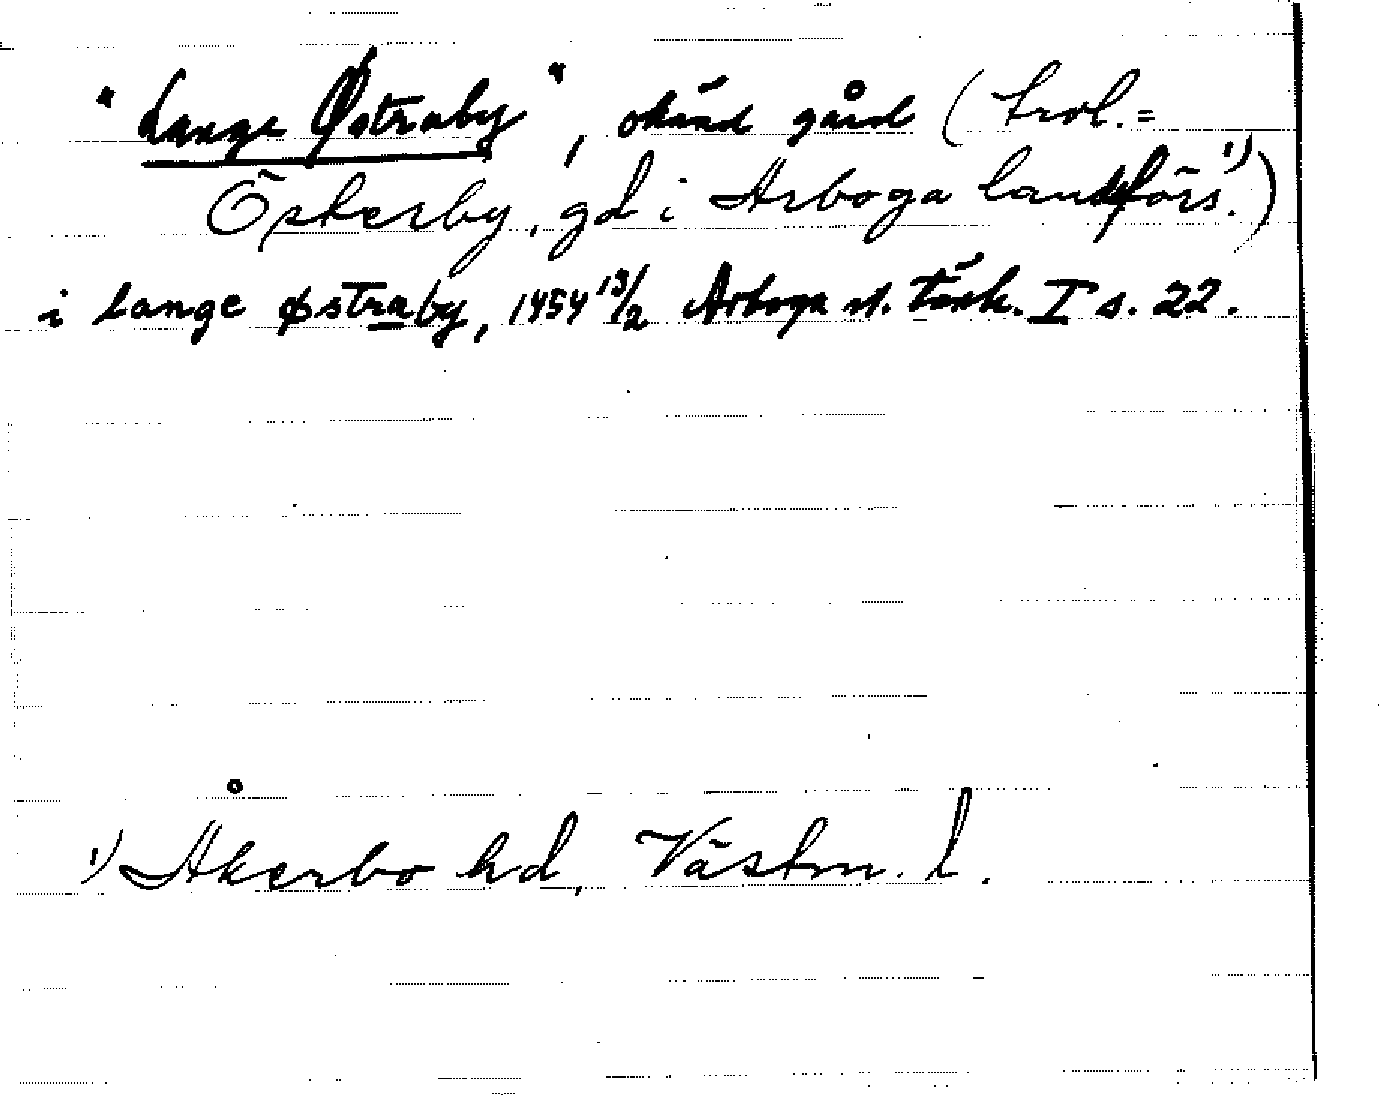 "Lange Østraby", okänd gård (trol.=
Österby, gd i Arboga landsförs.¹⁾)
i lange østraby, 1454 13/2 Arboga st. tänk. I s. 22.
¹⁾ Åkerbo hd, Västm. l.